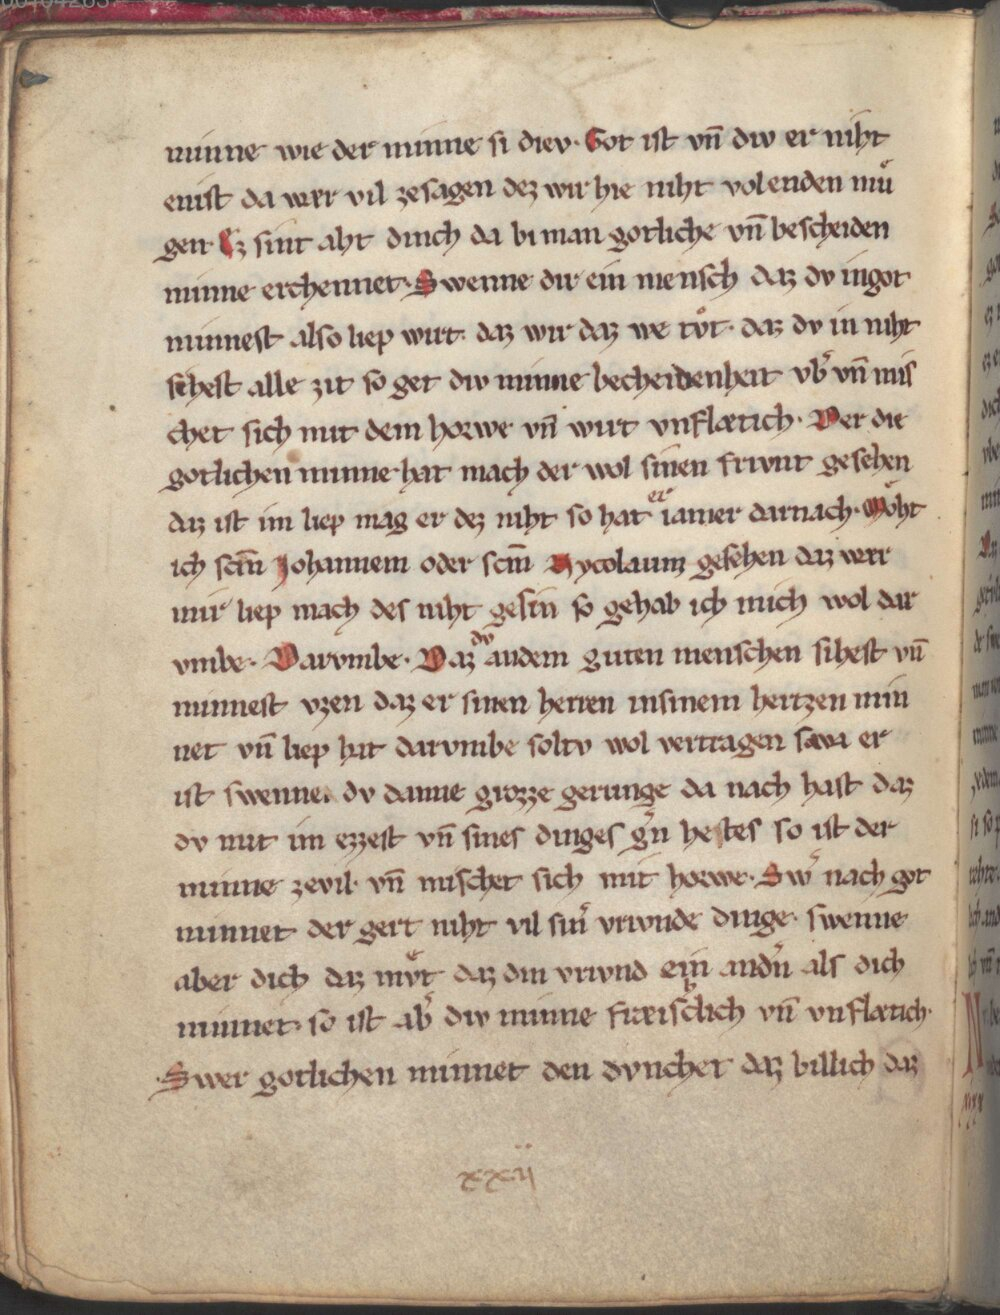 minne wie der minne si diev· Got ist vn̄ div er niht
enist da wær vil zesagen dez wir hie niht volenden muͤ
gen· Ez sint aht dinch da bi man gotliche vn̄ bescheiden
minne erchennet· Swenne dir ein mensch daz dv in got
minnest also liep wirt· daz wir daz we tuͦt· daz dv in niht
sehest alle zit so get div minne becheidenheit vb᷑ vn̄ mis
chet sich mit dem horwe vn̄ wirt vnflætich· Der die
gotlichen minne hat mach der wol sinen frivnt gesehen
daz ist im liep mag er dez niht so hat er iamer darnach· Moͤht
ich sctm̄ Johannem oder sctm̄ Nycolaum gesehen daz wær
mir liep mach des niht gesin so gehab ich mich wol dar
vmbe· Darvmbe· Daz dv andem guten menschen sihest vn̄
minnest vzen daz er sinen herren insinem hertzen min
net vn̄ liep hat darvmbe soltv wol vertragen swa er
ist swenne dv danne grozze gerunge da nach hast daz
dv mit im ezzest vn̄ sines dinges g᷑n hestes so ist der
minne zevil· vn̄ mischet sich mit horwe· Sw᷑ nach got
minnet der gert niht vil sin᷑ vrivnde dinge· swenne
aber dich daz muͤt daz din vrivnd ein and᷑n als dich
minnet· so ist ab᷑ div minne fræislich vn̄ vnflætich·
Swer gotlichen minnet den dvnchet daz billich daz
xxii